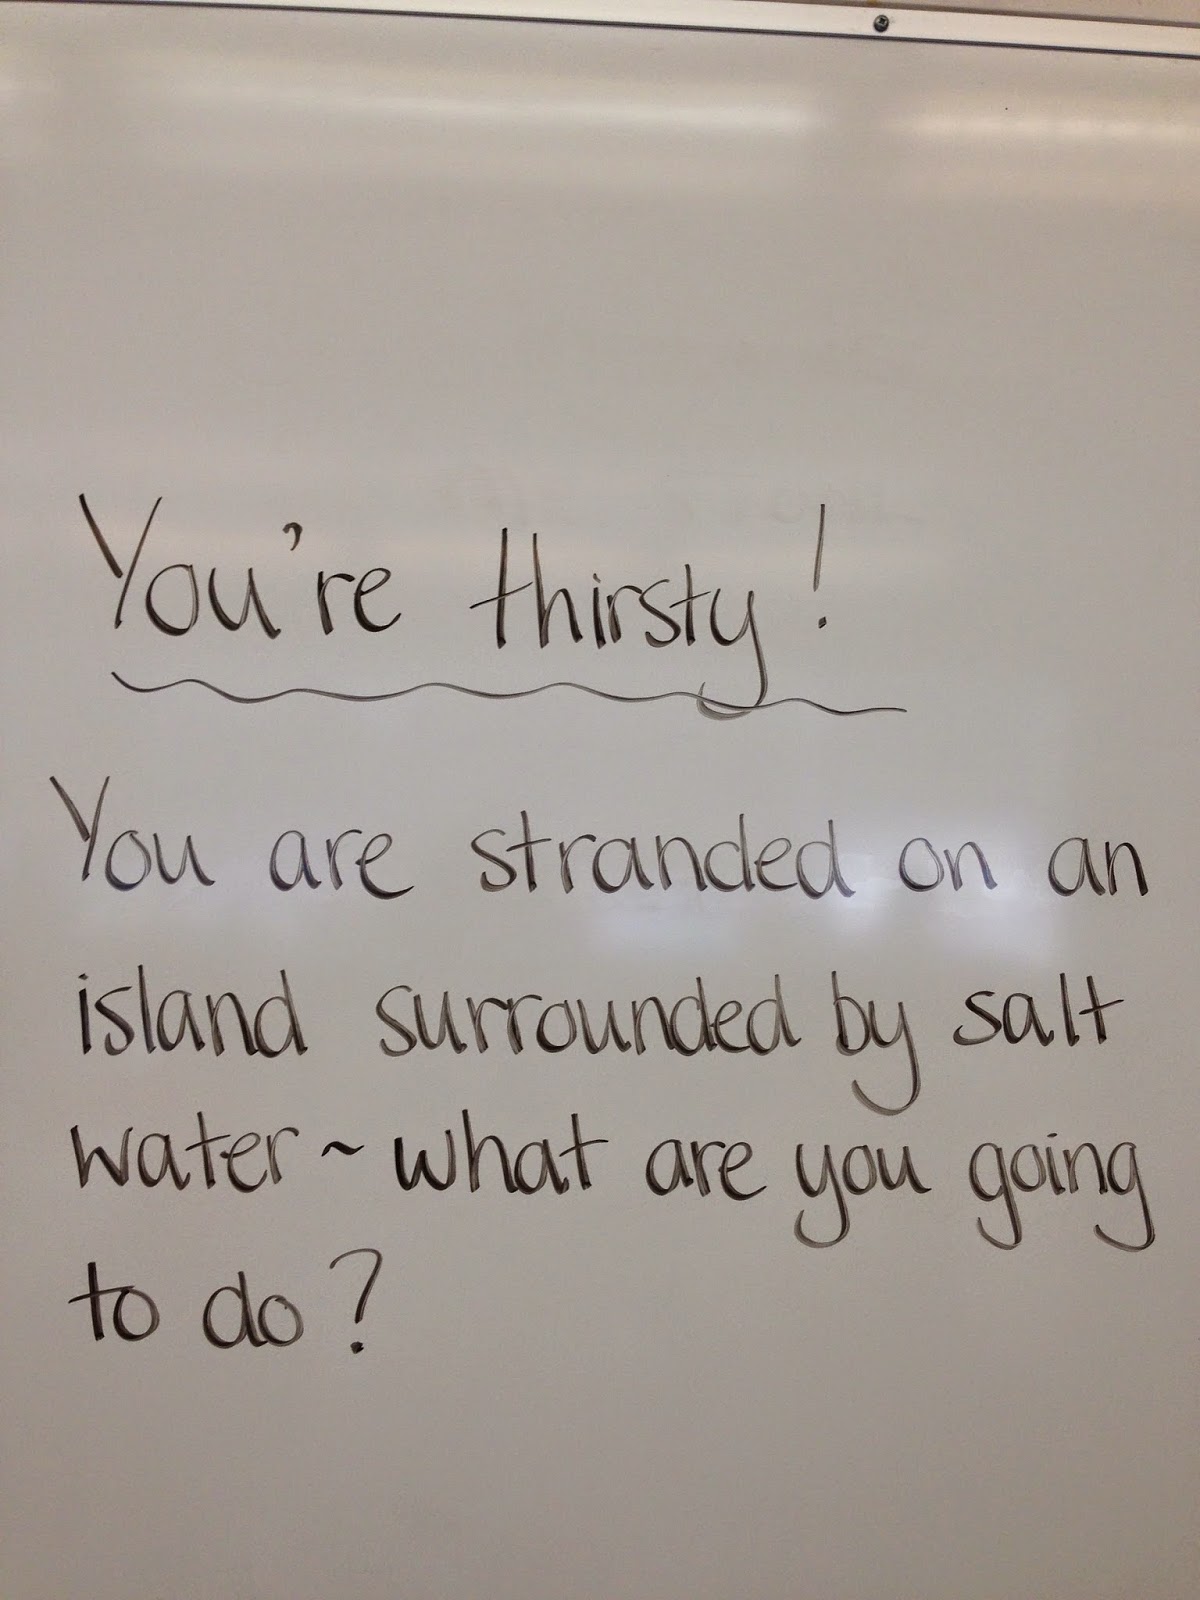 You're thirsty!
You are stranded on an
island surrounded by salt
water ~ what are you going
to do?